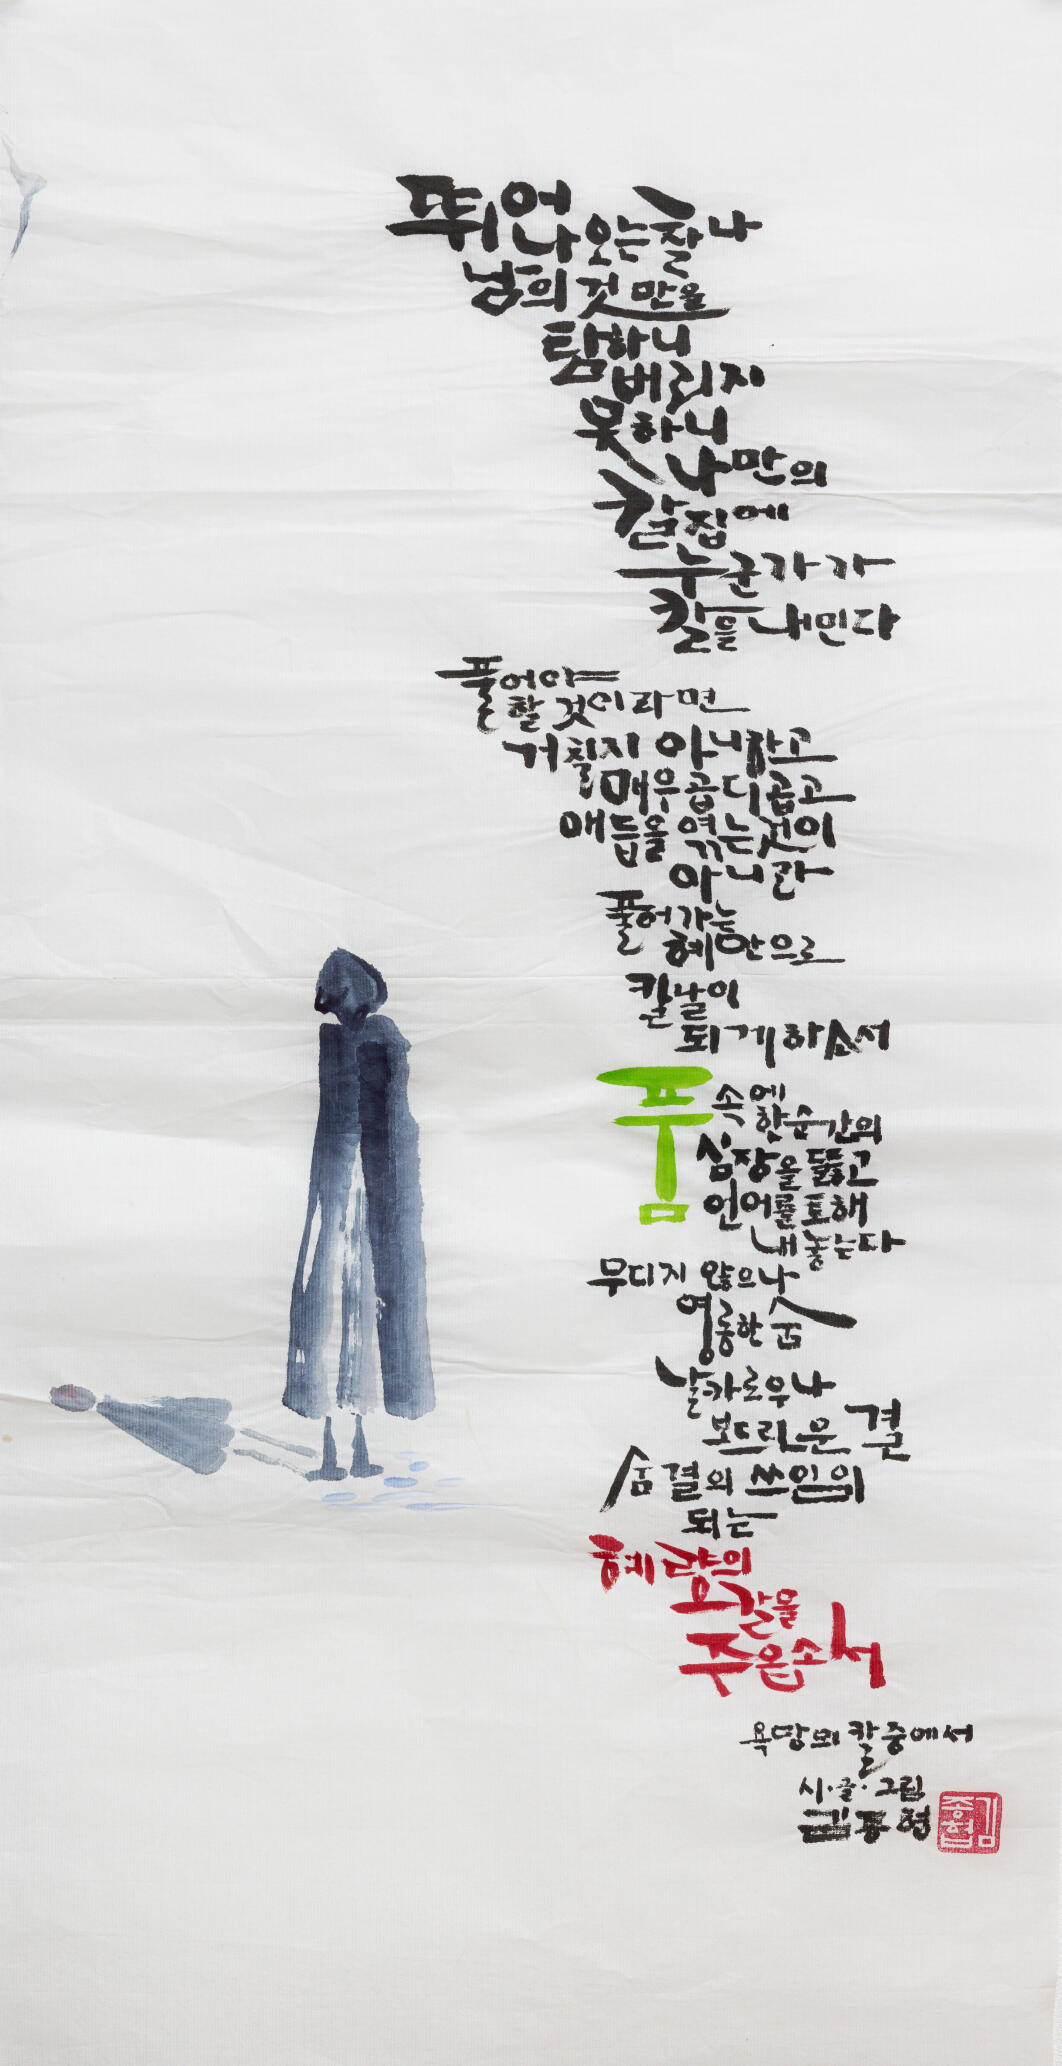 뛰어
나오는 찰나
님의 것 만을
탐하니
버리지
못하니
나만의
칼집에
누군가가
칼을 내민다
풀어야
할 것이라면
거칠지 아니하고
매우 곱디곱고
매듭을 엮는 것이
아니라
풀어가는
혜안으로
칼날이
되게 하소서
품 속에
한 순간의
심장을 뚫고
언어를 토해
내놓는다
무디지 않으나
영롱한 숨
날카로우나
보드라운 결
숨결의 쓰임이
되는
혜량의
칼을
주옵소서
욕망의 칼 중에서
시·글·그림
김종협
김종협